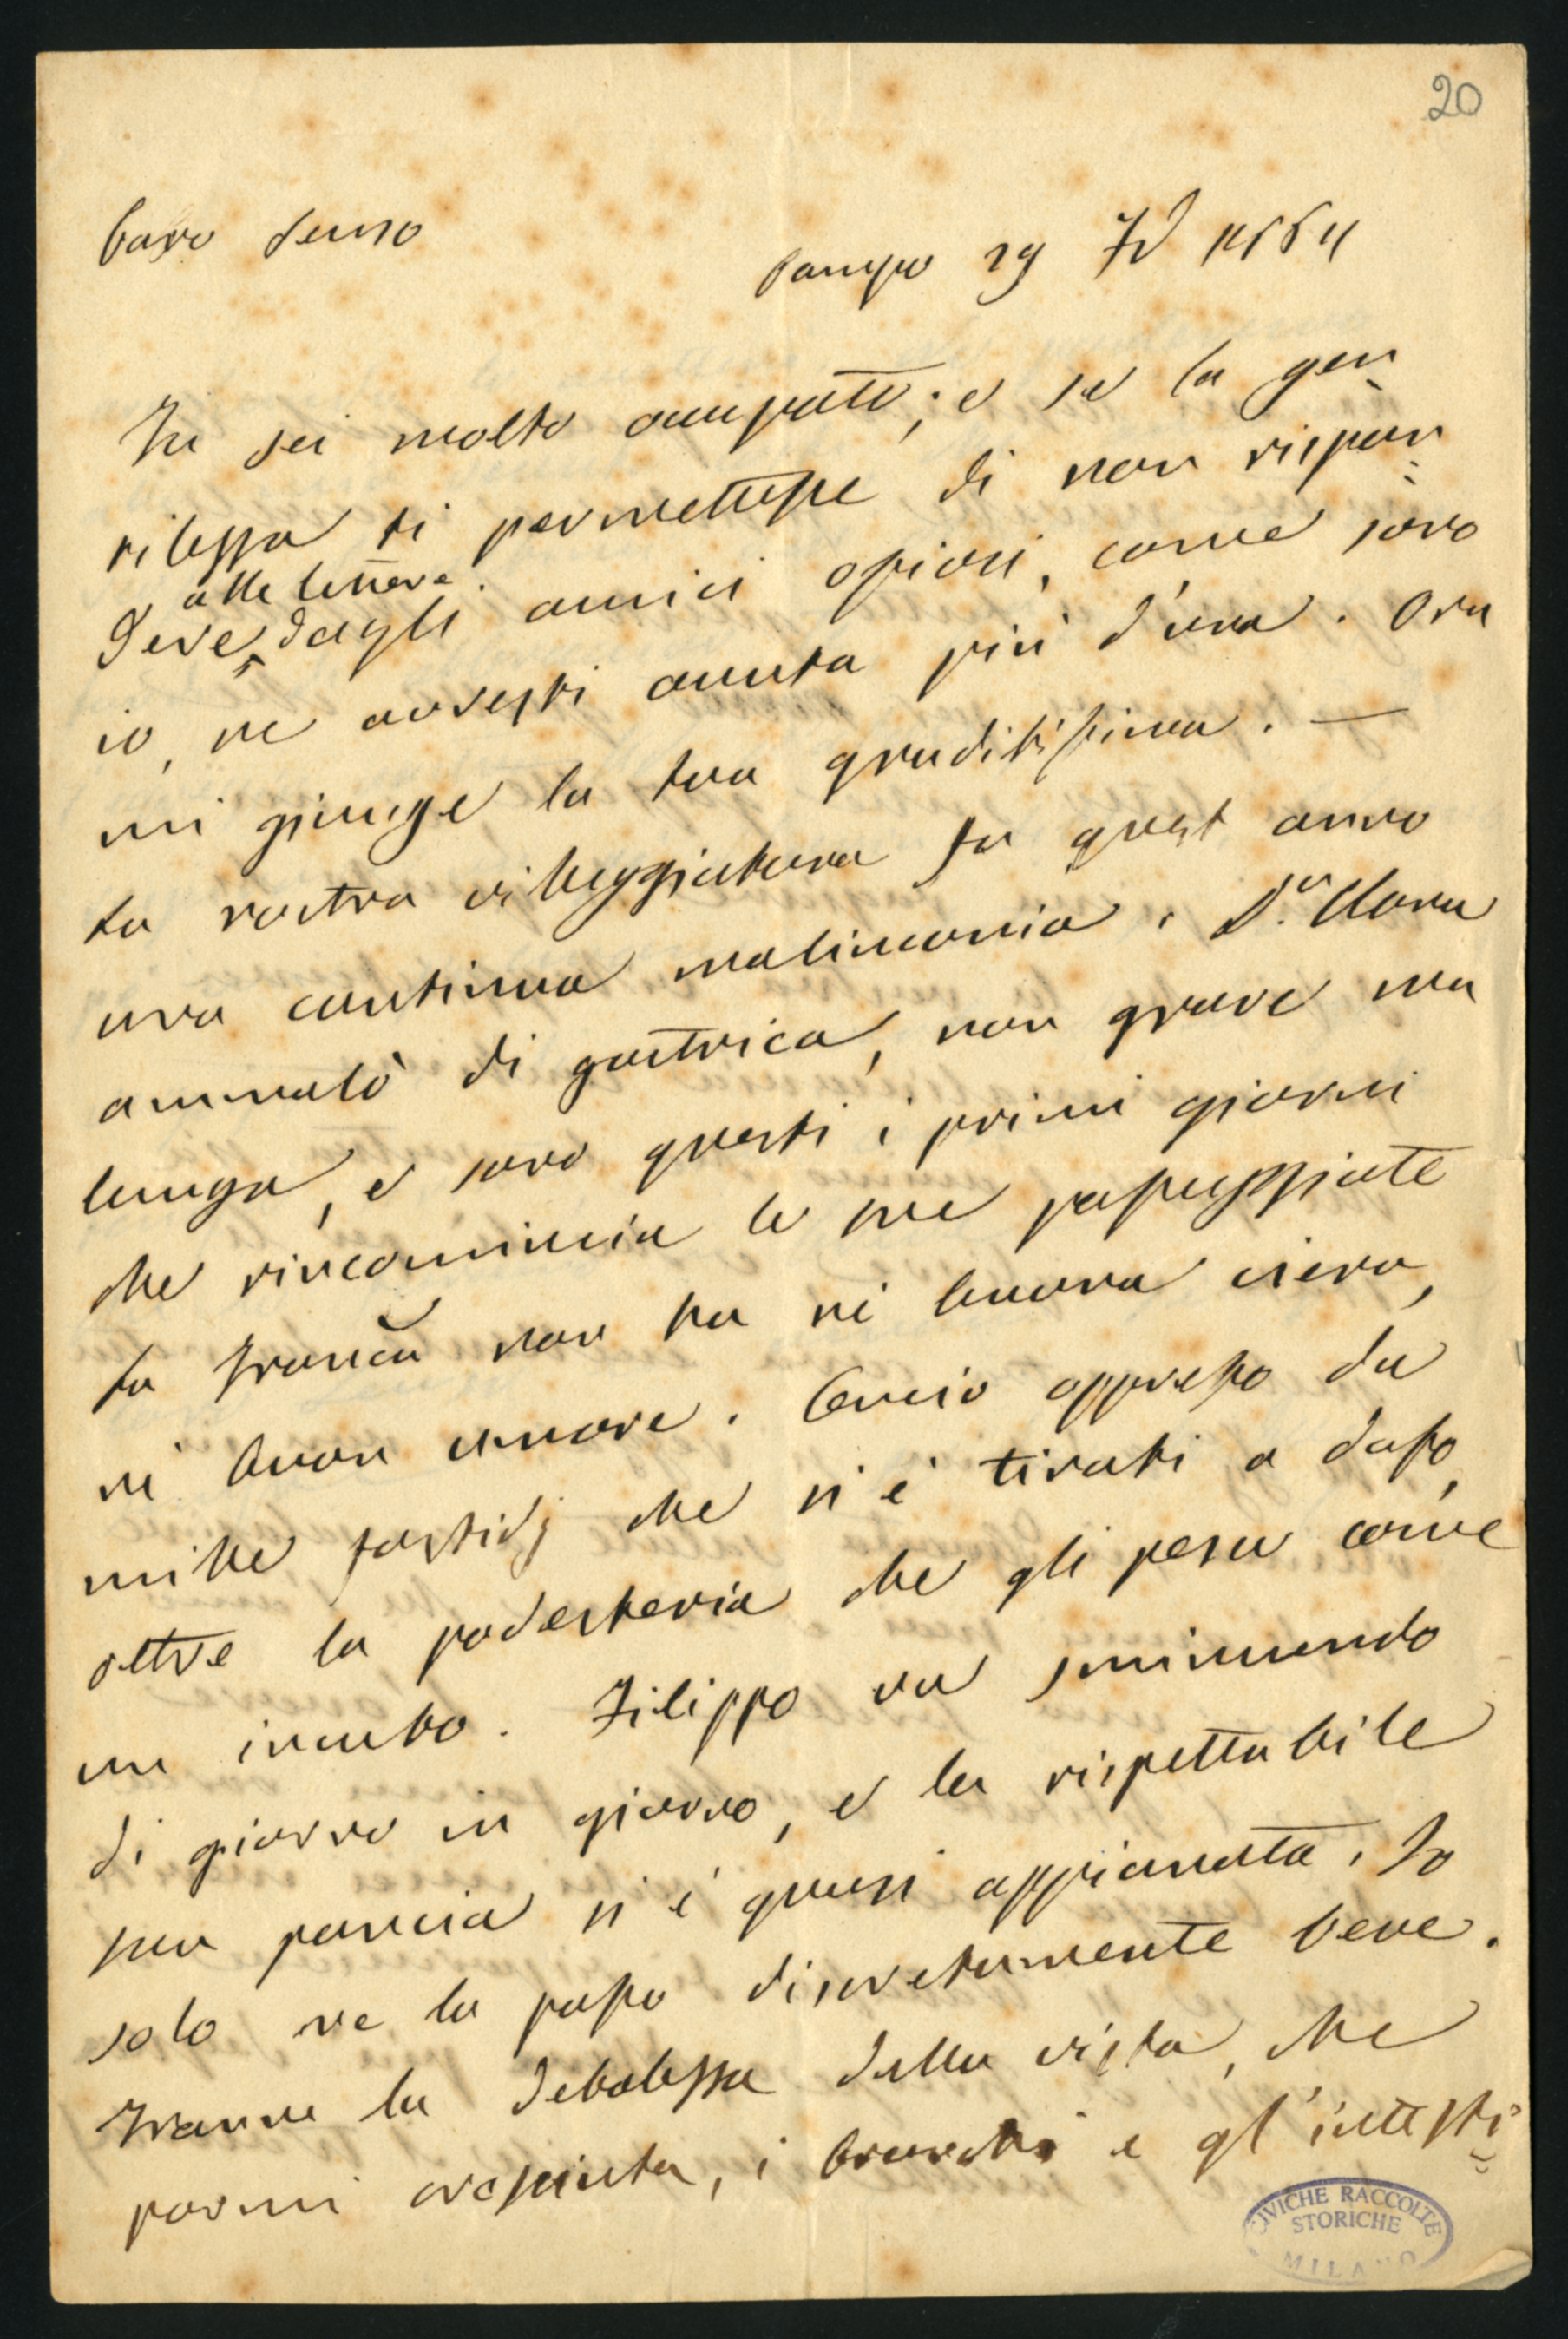 20
Caro
Campo 29
Tu sei molto occupato; e se la gen
tilezza ti permettesse di non rispon
alle lettere
dere dagli amici oziosi, come sono
io, ne avresti avuta più d'una. Ora
mi giunge la tua graditissima. —
La nostra villeggiatura fu quest anno
una continua malinconia. D.a Clara
ammalò di gastrica, non grave ma
lunga, e sono questi i primi giorni
che rincomincia le sue passeggiate
La non ha nè buona ciera,
nè buon umore. oppresso da
mille fastidj che si è tirati a dosso,
oltre la podesteria che gli pesa come
un incubo. Filippo va sminuendo
di giorno in giorno, e la rispettabile
sua pancia si è quasi appianata. Io
solo me la passo discretamente bene.
Tranne la debolezza della vista, che
parmi cresciuta, i bronchi e gl'intesti
CIVICHE RACCOLTE
STORICHE
MILANO